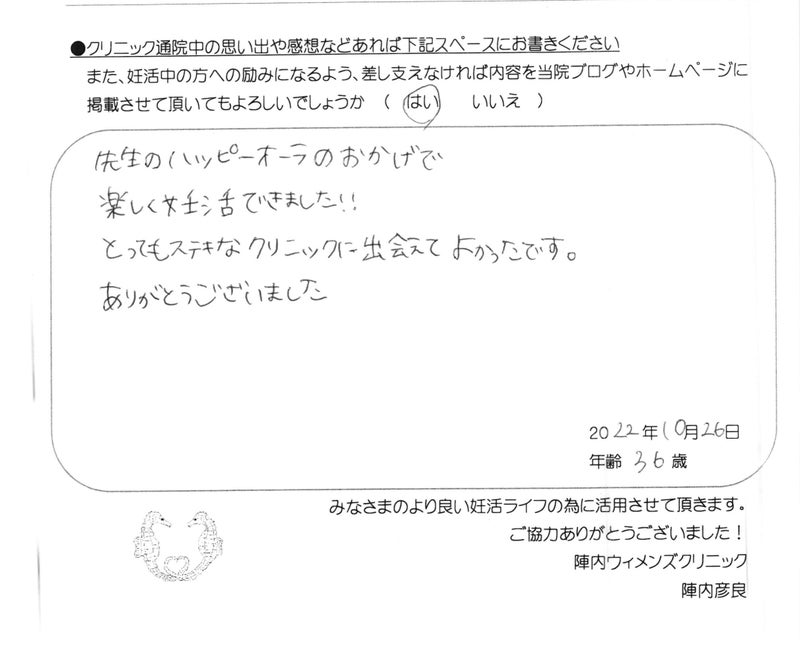 ●クリニック通院中の思い出や感想などあれば下記スペースにお書きください
また、妊活中の方への励みになるよう、差し支えなければ内容を当院ブログやホームページに
掲載させて頂いてもよろしいでしょうか （ はい いいえ ）
先生のハッピーオーラのおかげで
楽しく妊活できました!!
とってもステキなクリニックに出会えてよかったです。
ありがとうございました
2022年10月26日
年齢 36歳
みなさまのより良い妊活ライフの為に活用させて頂きます。
ご協力ありがとうございました！
陣内ウィメンズクリニック
陣内彦良